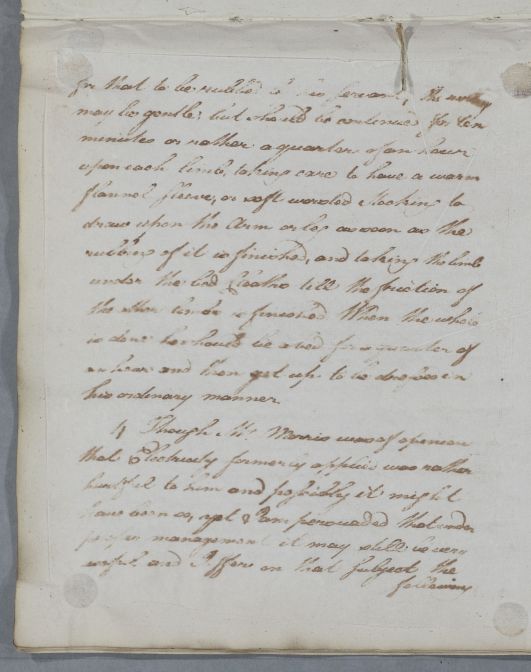 for that to be rubbed by his Servant, the rubbing
may be gentle; but should be continued for ten
minutes or rather a quarter of an hour
upon each limb, taking care to have a warm
flannel sleeve, or soft worsted Stocking to
draw upon the Arm or leg as soon as the
rubbing of it is finished, and taking the limb
under the bed Cloaths till the friction of
the other limbs is finished When the whole
is done he should lie a bed for a quarter of
an hour and then get up to be dressed in
his ordinary manner
4 Though Mr. Morris was of opinion
that Electricity formerly applied was rather
hurtful to him and possibly it might
have been so, yet I am persuaded that under
proper management it may still be very
usefull and I offer on that Subject the
following